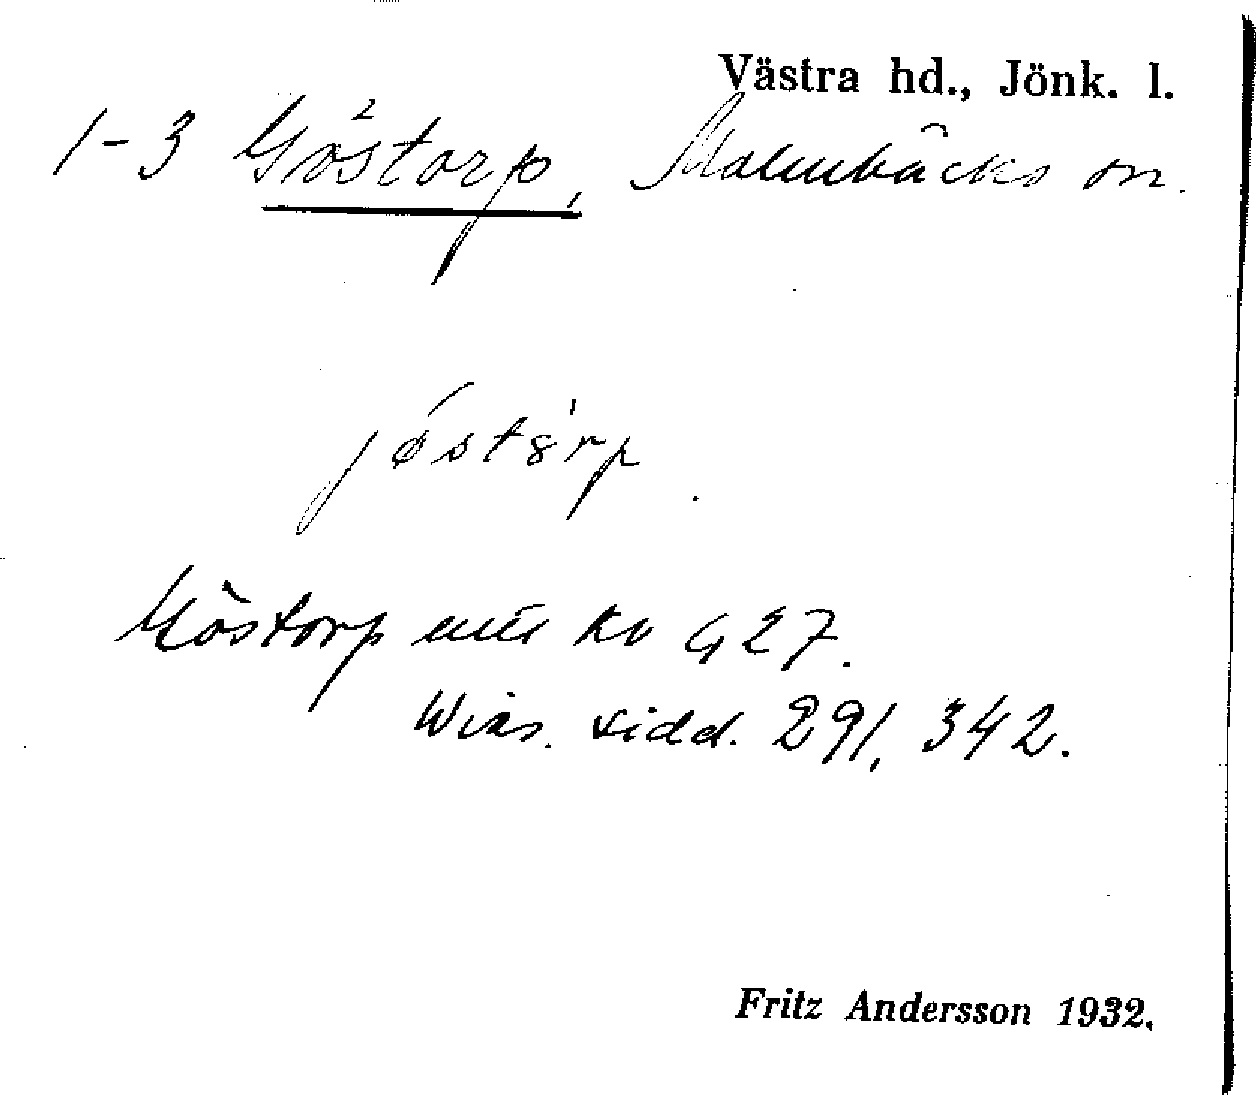 Västra hd., Jönk. l.
1-3 Göstorp, Malmbäcks sn.
jøstãrp
Göstorp utu Kv G 27.
Wirs. sidd. 291, 342.
Fritz Andersson 1932.